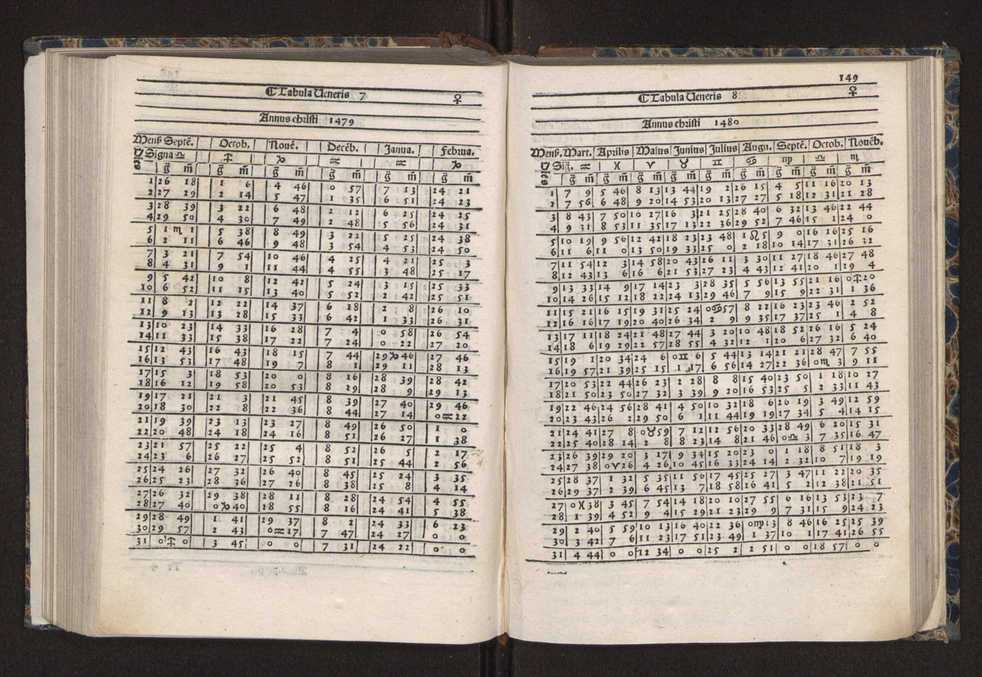 ¶ Tabula Veneris 7 ♀
Annus christi 1479
Menſ. Septē. Octob. Nouē. Decēb. Janua. Februa.
Signa ♎ ♐ ♑ ♒ ♒ ♑
g m̄ g m̄ g m̄ g m̄ g m̄ g m̄
1 26 18 1 6 4 46 0 57 7 13 24 21
2 27 29 2 14 5 47 1 35 6 51 24 23
3 28 39 3 22 6 48 2 12 6 25 24 25
4 29 50 4 30 7 49 2 48 5 56 24 31
5 1 ♏ 1 5 38 8 49 3 22 5 25 24 38
6 2 11 6 46 9 48 3 54 4 53 24 50
7 3 21 7 54 10 46 4 25 4 21 25 3
8 4 31 9 1 11 44 4 55 3 48 25 17
9 5 42 10 8 12 42 5 24 3 15 25 33
10 6 52 11 15 13 40 5 52 2 42 25 51
11 8 2 12 22 14 37 6 18 2 8 26 10
12 9 13 13 28 15 33 6 42 1 33 26 31
13 10 23 14 33 16 28 7 4 0 58 26 54
14 11 33 15 38 17 22 7 24 0 22 27 20
15 12 43 16 43 18 15 7 44 29 ♑ 46 27 46
16 13 53 17 48 19 7 8 1 29 11 28 13
17 15 3 18 53 20 0 8 16 28 39 28 42
18 16 12 19 58 20 53 8 29 28 9 29 13
19 17 21 21 3 21 45 8 39 27 40 29 46
20 18 30 22 8 22 36 8 44 27 14 0 ♒ 22
21 19 39 23 13 23 27 8 49 26 50 1 0
22 20 48 24 18 24 16 8 51 26 27 1 38
23 21 57 25 22 25 4 8 52 26 5 2 17
24 23 6 26 27 25 52 8 51 25 44 2 56
25 24 26 27 32 26 40 8 45 25 24 3 35
26 25 23 28 36 27 26 8 38 25 8 4 14
27 26 32 29 38 28 11 8 28 24 54 4 55
28 27 40 0 ♑ 40 28 55 8 16 24 41 5 38
29 28 49 1 41 29 37 8 2 24 33 6 23
30 29 57 2 43 0 ♒ 17 7 47 24 27 0 0
31 0 ♐ 0 3 45 0 0 7 31 24 22 0 0
149
¶ Tabula Veneris 8 ♀
Annus christi 1480
Menſ. Mart. Aprilis Maius Junius Julius Augu. Septē. Octob. Nouēb.
Sig. ♒ ♓ ♈ ♉ ♊ ♋ ♍ ♎ ♏
g m̄ g m̄ g m̄ g m̄ g m̄ g m̄ g m̄ g m̄ g m̄
1 7 9 5 46 8 13 13 44 19 2 26 15 4 5 11 16 20 13
2 7 56 6 48 9 20 14 53 20 13 27 27 5 18 12 31 21 28
3 8 43 7 50 10 27 16 3 21 25 28 40 6 32 13 46 22 44
4 9 31 8 53 11 35 17 13 22 36 29 52 7 46 15 1 24 0
5 10 19 9 56 12 42 18 23 23 48 1 ♌ 5 9 0 16 16 25 16
6 11 6 11 0 13 50 19 33 25 0 2 18 10 14 17 31 26 32
7 11 54 12 3 14 58 20 43 26 11 3 30 11 27 18 46 27 48
8 12 43 13 6 16 6 21 53 27 23 4 43 12 41 20 1 29 4
9 13 33 14 9 17 14 23 3 28 35 5 56 13 55 21 16 0 ♐ 20
10 14 26 15 12 18 22 24 13 29 46 7 9 15 9 22 31 1 36
11 15 21 16 15 19 31 25 24 0 ♋ 57 8 22 16 23 23 46 2 52
12 16 16 17 19 20 40 26 34 2 9 9 35 17 37 25 1 4 8
13 17 11 18 24 21 48 27 44 3 20 10 48 18 52 26 16 5 24
14 18 6 19 29 22 57 28 55 4 32 12 1 20 6 27 32 6 40
15 19 1 20 34 24 6 0 ♊ 6 5 44 13 14 21 21 28 47 7 55
16 19 57 21 39 25 15 1 17 6 56 14 27 22 36 0 ♏ 3 9 11
17 20 53 22 44 26 23 2 28 8 8 15 40 23 50 1 18 10 27
18 21 50 23 50 27 32 3 39 9 20 16 53 25 5 2 33 11 43
19 22 46 24 56 28 41 4 50 10 32 18 6 26 19 3 49 12 59
20 23 43 26 2 29 50 6 1 11 44 19 19 27 34 5 4 14 15
21 24 41 27 8 0 ♉ 59 7 12 12 56 20 33 28 49 6 20 15 31
22 25 40 28 14 2 8 8 23 14 8 21 46 0 ♎ 3 7 35 16 47
23 26 39 29 20 3 17 9 34 15 20 23 0 1 18 8 51 18 3
24 27 38 0 ♈ 26 4 26 10 45 16 33 24 14 2 32 10 7 19 19
25 28 37 1 32 5 35 11 56 17 45 25 27 3 47 11 22 20 35
26 29 37 2 39 6 45 13 7 18 58 26 41 5 2 12 38 21 51
27 0 ♓ 38 3 45 7 54 14 18 20 10 27 55 6 16 13 53 23 7
28 1 39 4 52 9 4 15 29 21 23 29 9 7 31 15 9 24 23
29 2 40 5 59 10 13 16 40 22 36 0 ♍ 23 8 46 16 25 25 39
30 3 42 7 6 11 23 17 51 23 49 1 37 10 1 17 41 26 55
31 4 44 0 0 12 34 0 0 25 2 2 51 0 0 18 57 0 0